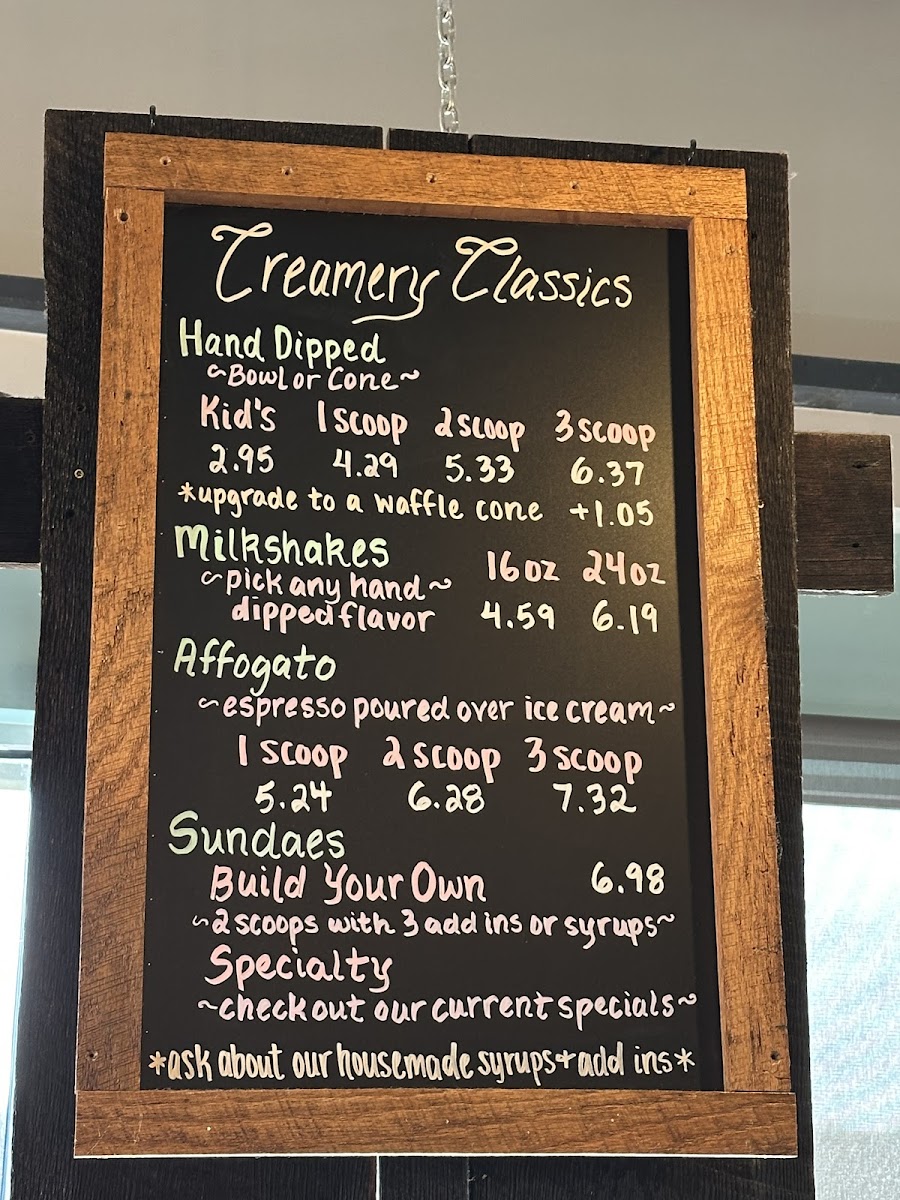 Creamery Classics
Hand Dipped
~Bowl or Cone~
Kid's 1 scoop 2 scoop 3 scoop
2.95 4.29 5.33 6.37
*upgrade to a waffle cone +1.05
Milkshakes 16oz 24oz
~pick any hand~
dipped flavor 4.59 6.19
Affogato
~espresso poured over ice cream~
1 scoop 2 scoop 3 scoop
5.24 6.28 7.32
Sundaes
Build Your Own 6.98
~2 scoops with 3 add ins or syrups~
Specialty
~check out our current specials~
*ask about our housemade syrups + add ins*